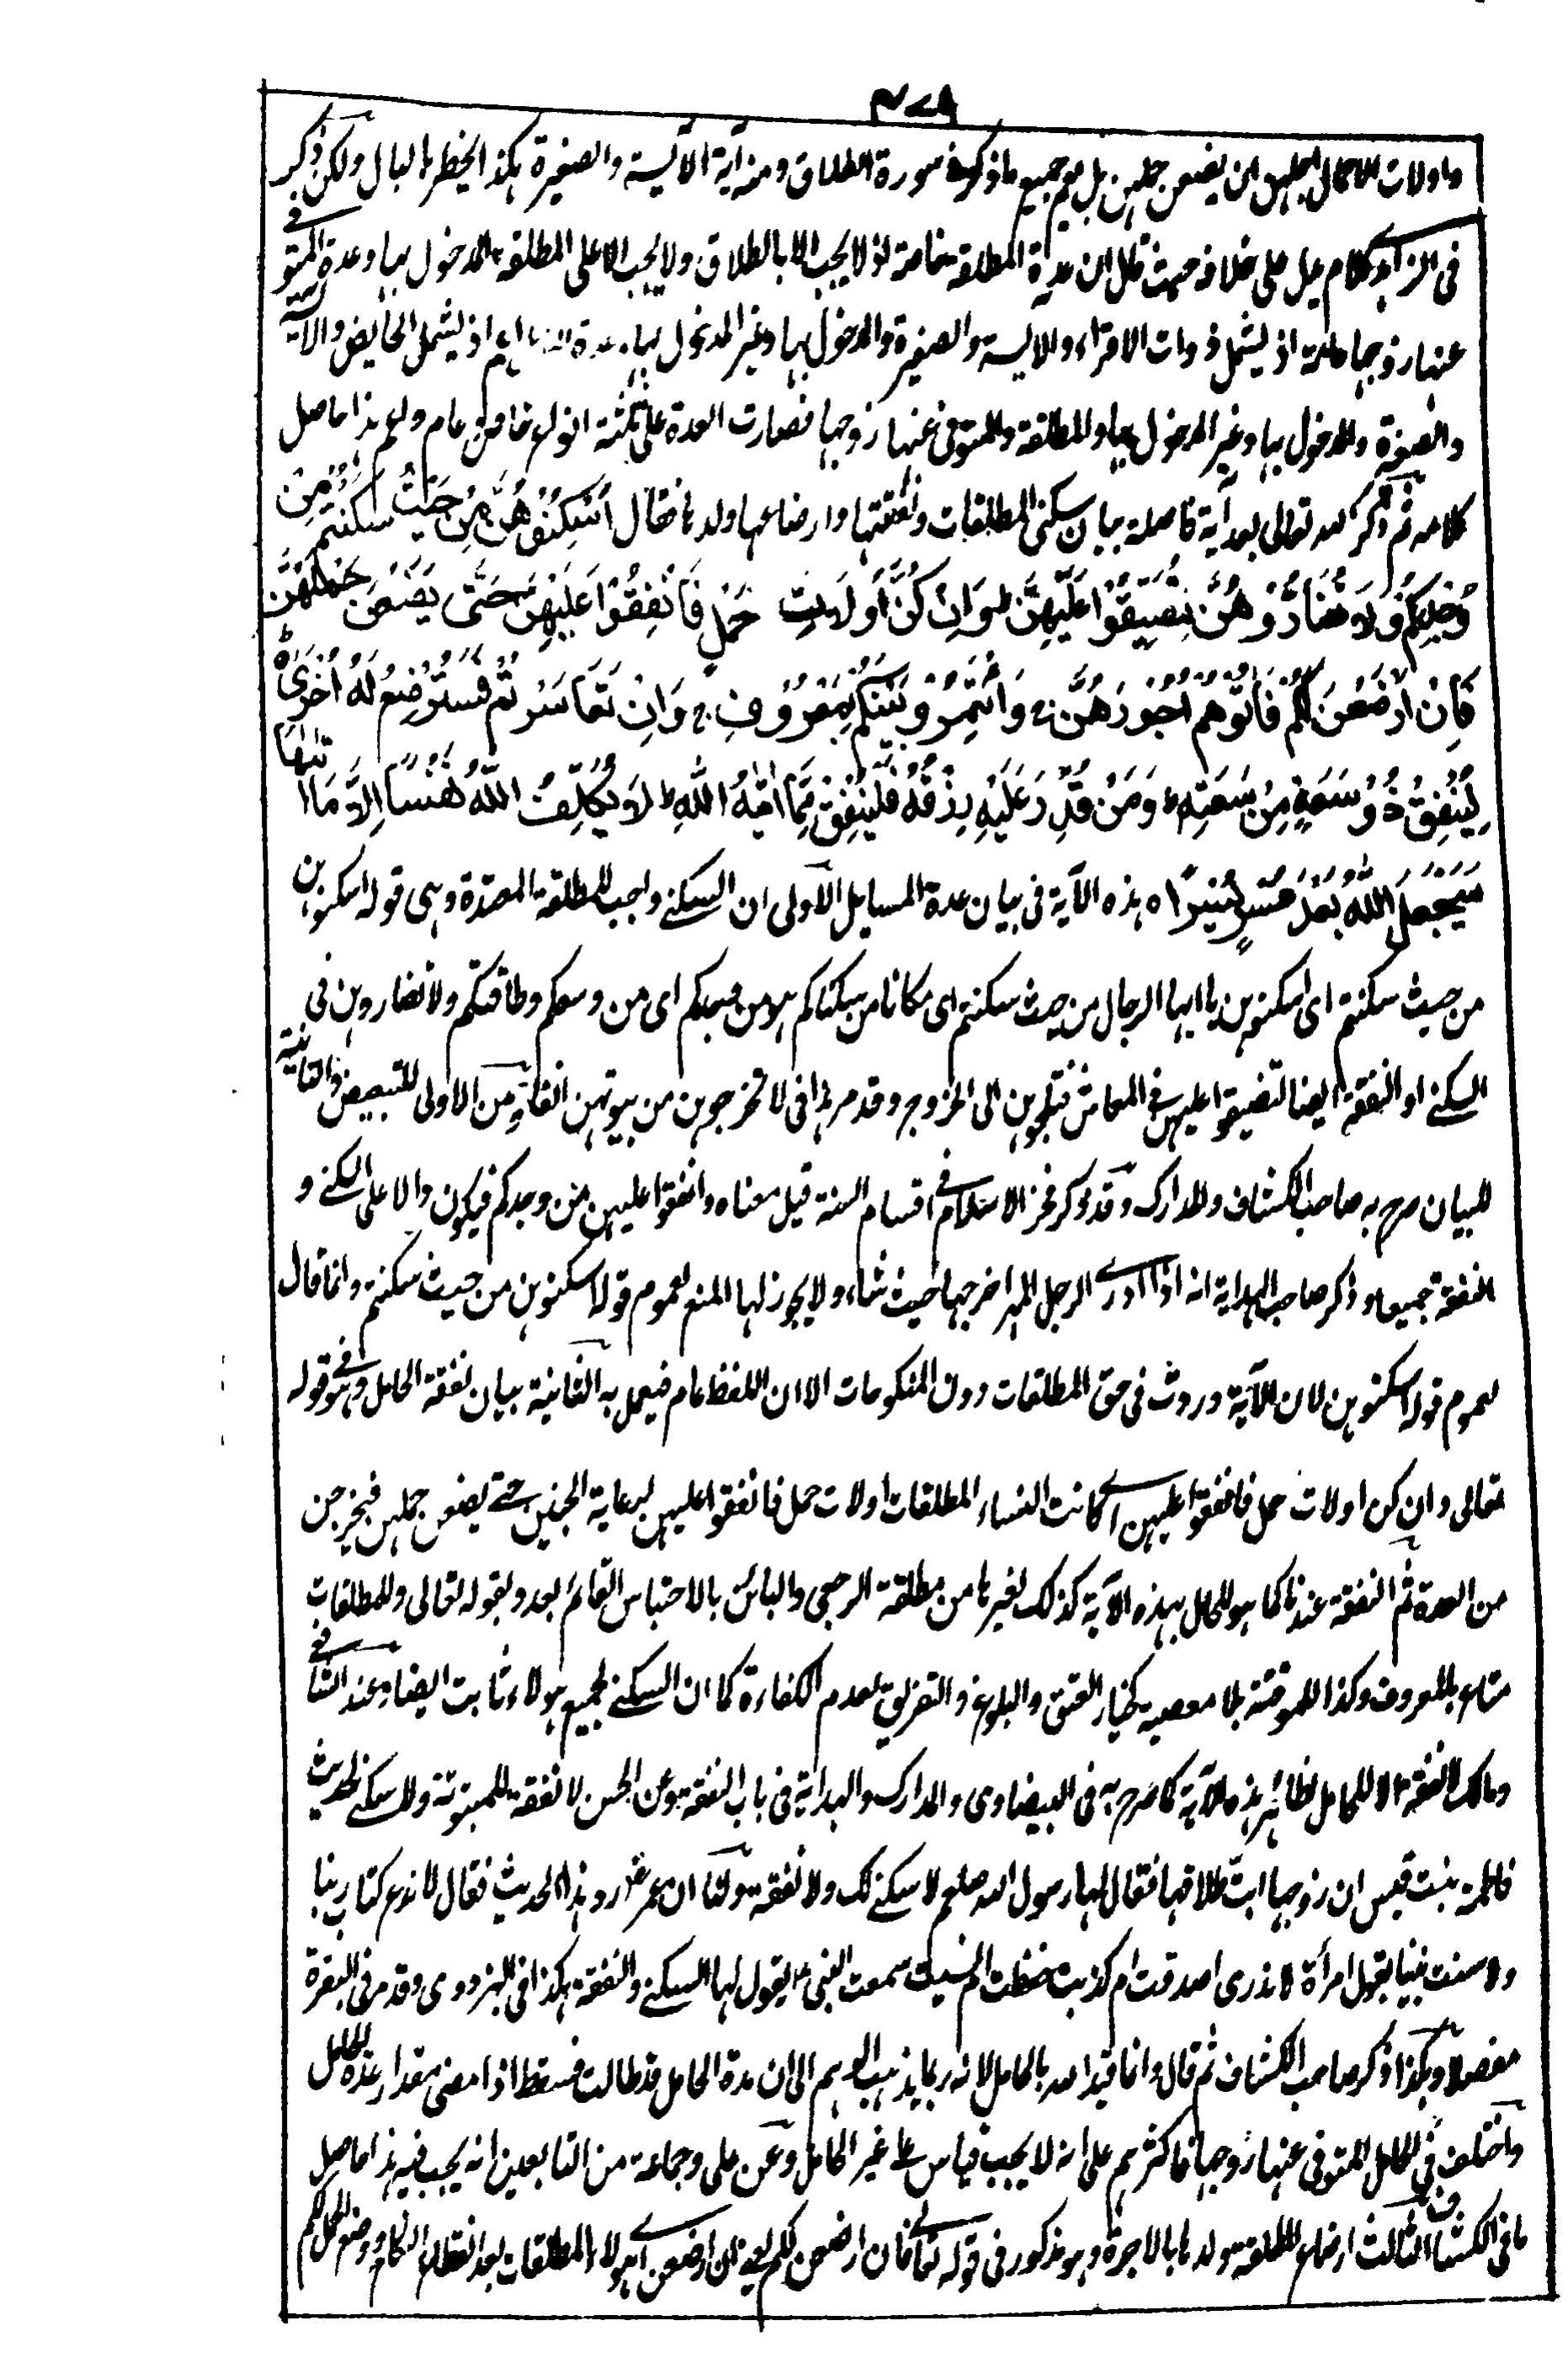 ٦٧٨
واولات الاحمال اجلهن ان يضعن حملهن بل يعم جميع ما ذكر في سورة الطلاق ومنه آية الآيسة والصغيرة هكذا يخطر بالبال ولكن ذكر
في الزاهدي كلام يدل على خلافه حيث قال ان عدة المطلقة خاصة اذ لا يجب الا بالطلاق ولا يجب الا على المطلقة المدخول بها وعدة المتوفى
عنها زوجها عامة اذ يشمل ذوات الاقراء والآيسة والصغيرة والمدخول بها وغير المدخول بها وعدة اعم اذ يشمل الحايض والآيسة
والصغيرة والمدخول بها وغير المدخول بها والمطلقة والمتوفى عنها زوجها فصارت العدة على ثلثة انواع خاص وعام واعم هذا حاصل
كلامه ثم ذكر الله تعالى بعد آية فاصلة بيان سكنى المطلقات ونفقتها وارضاعها ولدها فقال أَسْكِنُوْهُنَّ مِنْ حَيْثُ سَكَنْتُمْ مِّنْ
وُّجْدِكُمْ وَلَا تُضَارُّوْهُنَّ لِتُضَيِّقُوْا عَلَيْهِنَّ ط وَاِنْ كُنَّ اُولَاتِ حَمْلٍ فَاَنْفِقُوْا عَلَيْهِنَّ حَتّٰى يَضَعْنَ حَمْلَهُنَّ
فَاِنْ اَرْضَعْنَ لَكُمْ فَاٰتُوْهُنَّ اُجُوْرَهُنَّ ج وَاْتَمِرُوْا بَيْنَكُمْ بِمَعْرُوْفٍ ج وَاِنْ تَعَاسَرْتُمْ فَسَتُرْضِعُ لَهٗ اُخْرٰى ط
لِيُنْفِقْ ذُوْ سَعَةٍ مِّنْ سَعَتِهٖ ط وَمَنْ قُدِرَ عَلَيْهِ رِزْقُهٗ فَلْيُنْفِقْ مِمَّا اٰتٰهُ اللّٰهُ ط لَا يُكَلِّفُ اللّٰهُ نَفْسًا اِلَّا مَا اٰتٰهَا
سَيَجْعَلُ اللّٰهُ بَعْدَ عُسْرٍ يُّسْرًا ه هذه الآية في بيان عدة المسايل الاولى ان السكنى واجب للمطلقة المعتدة وهي قوله اسكنوهن
من حيث سكنتم اى اسكنوهن يا ايها الرجال من حيث سكنتم اى مكانا من سكناكم هو من وجدكم اى من وسعكم وطاقتكم ولا تضاروهن في
السكنى او النفقة ايضا لتضيقوا عليهن في المعاش فتلجوهن الى الخروج وقد مر هذا في لا تخرجوهن من بيوتهن آنفا ومن الاولى للتبعيض والثانية
للبيان صرح به صاحب الكشاف والمدارك وقد ذكر فخر الاسلام في اقسام السنة قيل معناه وانفقوا عليهن من وجدكم فيكون دالا على السكنى و
النفقة جميعا وذكر صاحب الهداية انه اذا ادى الرجل المهر اخرجها حيث شاء ولا يجوز لها المنع لعموم قوله اسكنوهن من حيث سكنتم وانما قال
لعموم قوله اسكنوهن لان الآية وردت في حق المطلقات دون المنكوحات الا ان اللفظ عام فيعمل به الثانية بيان نفقة الحامل وهو في قوله
تعالى وان كن اولات حمل فانفقوا عليهن اى كانت النساء المطلقات اولات حمل فانفقوا عليهن لرعاية الجنين حتى يضعن حملهن فيخرجن
من العدة ثم النفقة عندنا كما هو للحامل بهذه الآية كذلك لغيرها من مطلقة الرجعى والبائن بالاحتباس القائم بعد وبقوله تعالى وللمطلقات
متاع بالمعروف وكذا للفرقة بلا معصية كخيار العتق والبلوغ والتفريق لعدم الكفاءة كما ان السكنى لجميع هؤلاء ثابت ايضا وعند الشافعي
ومالك لا نفقة الا للحامل لظاهر هذه الآية كما صرح به في البيضاوى والمدارك والهداية في باب النفقة وعن الحسن لا نفقة للمبتوتة ولا سكنى لحديث
فاطمة بنت قيس ان زوجها ابت طلاقها فقال لها رسول الله صلعم لا سكنى لك ولا نفقة ولنا ان عمر رض رد هذا الحديث فقال لا ندع كتاب ربنا
ولا سنت نبينا بقول امرأة لا ندرى اصدقت ام كذبت حفظت ام نسيت سمعت النبي ع يقول لها السكنى والنفقة هكذا في البزدوى وقد مر في البقرة
مفصلا وهكذا ذكر صاحب الكشاف ثم قال وانما قيد الله بالحامل لانه ربما يذهب الوهم الى ان مدة الحامل قد طالت فيسقط اذا مضى مقدار عدة الحامل
واختلف في الحامل المتوفى عنها زوجها فاكثرهم على انه لا يجب قياس على غير الحامل وعن على وجماعة من التابعين انه يجب فيه هذا حاصل
ما في الكشاف الثالث ارضاع المطلقة ولدها بالاجرة وهو مذكور في قوله تعالى فان ارضعن لكم يعنى ان ارضعن هؤلاء المطلقات بعد انقطاع النكاح ووضع الحمل لكم